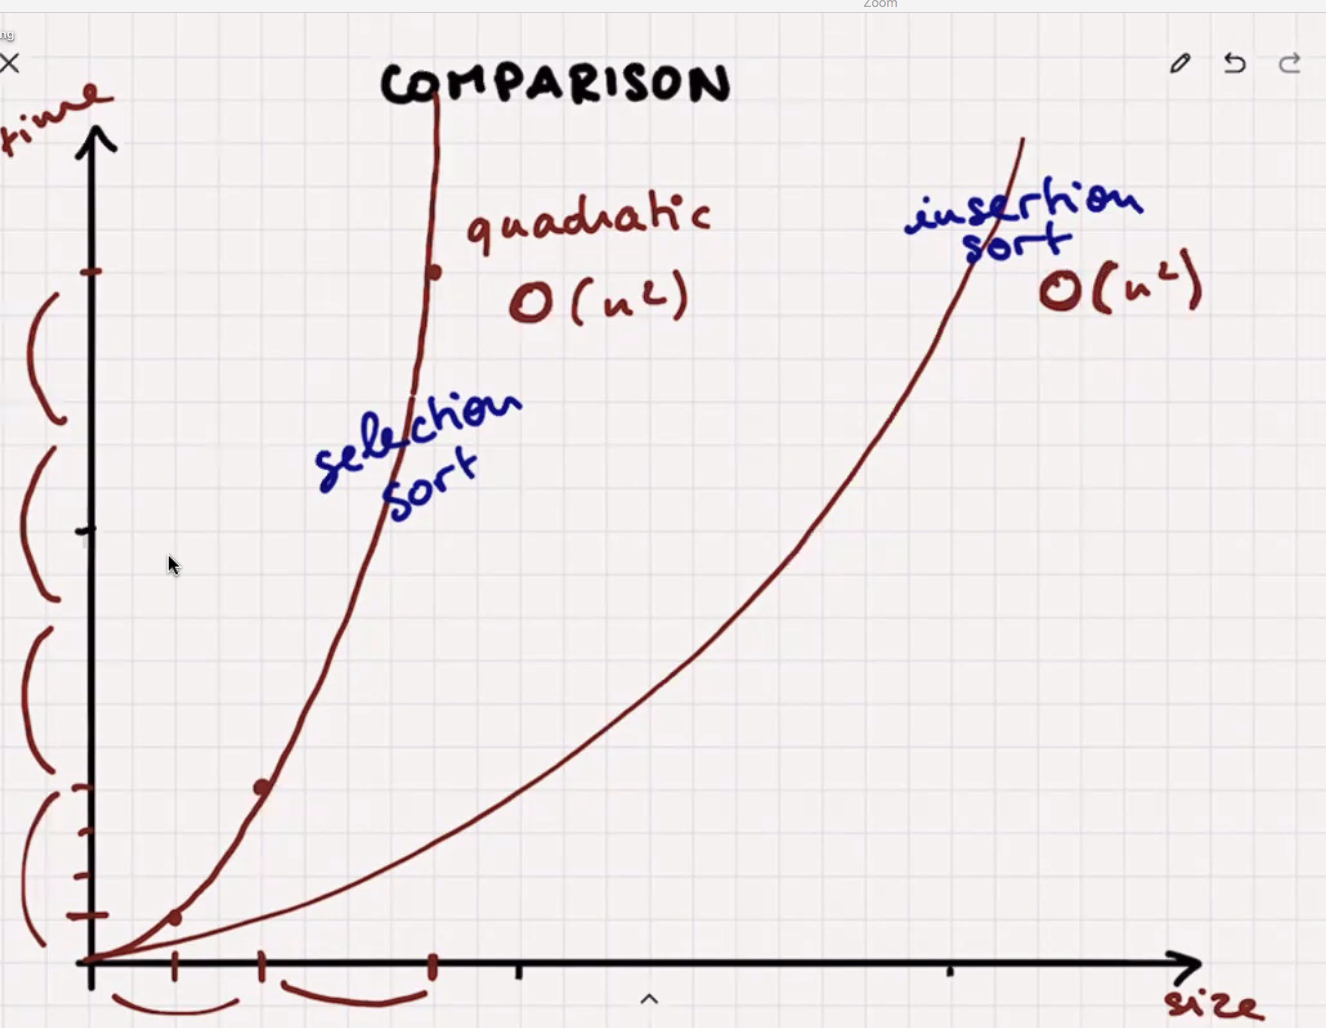 Zoom
ng
COMPARISON
time
quadratic
O(n²)
insertion
sort
O(n²)
selection
sort
size